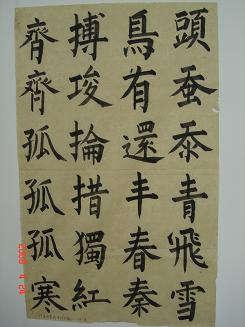 頭蚕忝青飛雪
鳥有還丰春秦
搏掄措獨紅
齊齊孤孤孤寒
2008 4 24